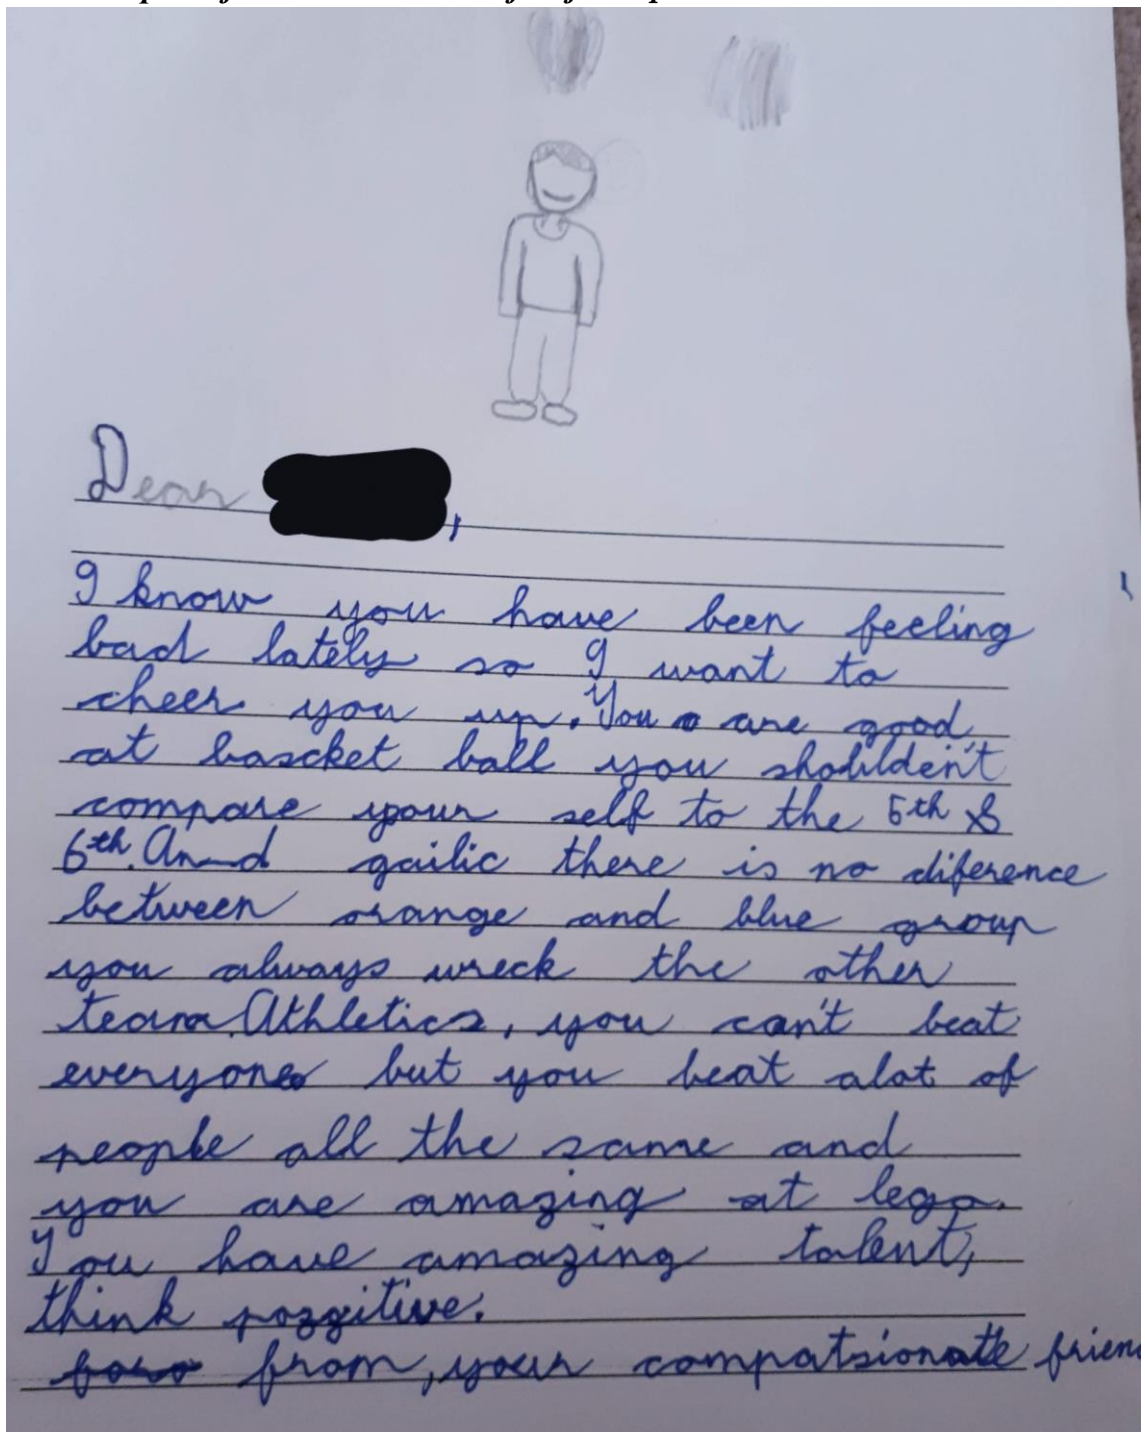 Dear ,
I know you have been feeling
bad lately so I want to
cheer you up. You are good
at bascket ball you shouldden't
compare your self to the 5th &
6th. And gailic there is no diference
between orange and blue group
you always wreck the other
team. Athletics, you can't beat
everyone but you beat alot of
people all the same and
you are amazing at lego.
You have amazing talent,
think pozgitive.
from, your compatsionate frien